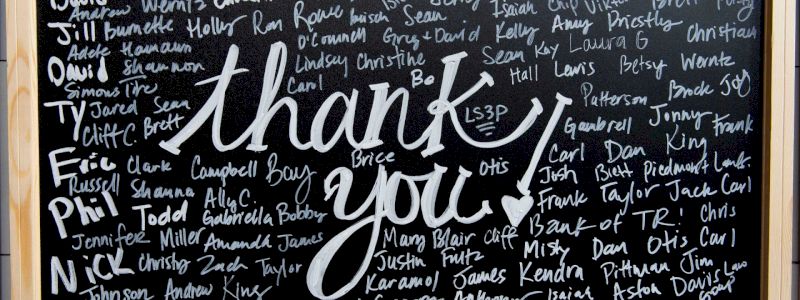 Andrew Wentz
Jill Burnette Holly Ron Rowe Sean Isaiah Chip Viktor Brett
Adele Hamann O'Connell Greg and David Kelly Amy Priestly
David Shannon Lindsey Christine Sean Kay Laura G Christian
Simous Carol Bo Hall Lewis Betsy Wentz
Ty Jared Sean thank LS3P Patterson Brock Joy
Cliff C. Brett Gambrell Jonny Frank
Eric Clark Campbell Bay Brice Otis Carl Dan King
Russell Shanna Ally C. you Josh Brett Piedmont
Phil Todd Gabriella Bobby Frank Taylor Jack Carl
Jennifer Miller Amanda James Mary Blair Cliff Bank of TR! Chris
Nick Christy Zach Taylor Justin Futz Misty Dan Otis Carl
Johnson Andrew King Karamol James Kendra Pittman Jim
Isaiah Aston Davis Law Group